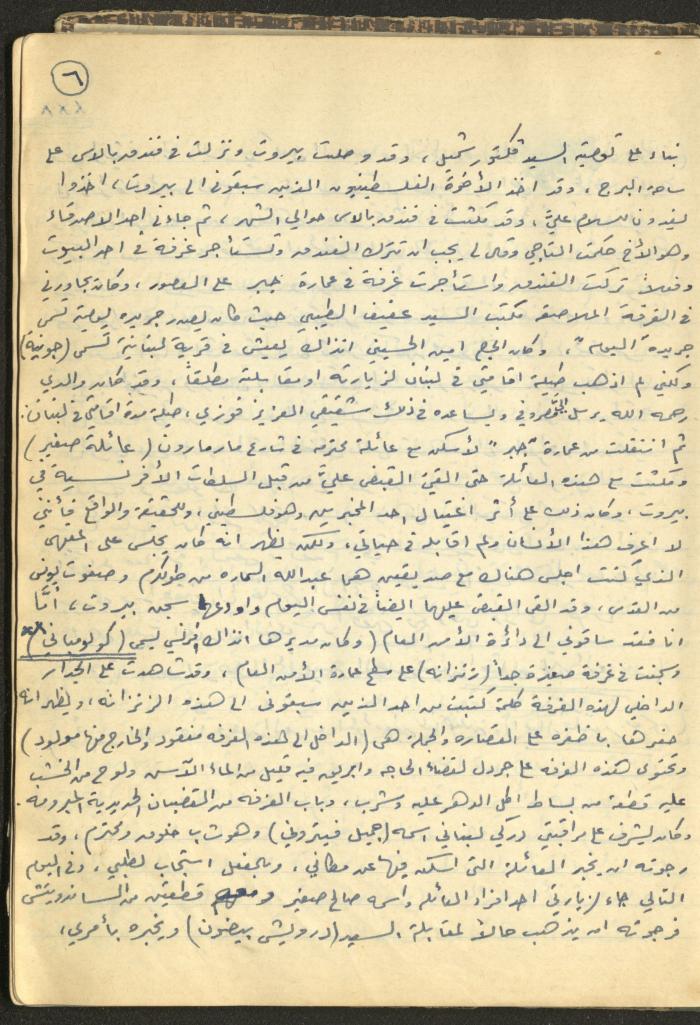 ٦
بناء على توصية السيد فكتور شميل، وقد وصلت بيروت ونزلت في فندق بالاس على
ساحة البرج، وقد اخذ الأخوة الفلسطينيون الذين سبقوني الى بيروت، اخذوا
يفدون للسلام عليّ، وقد مكثت في فندق بالاس حوالي الشهر، ثم جاءني أحد الاصدقاء
وهو الأخ حكمت التاجي وقال لي يجب ان تترك الفندق وتستأجر غرفة في احد البيوت
وفعلاً تركت الفندق واستأجرت غرفة في عمارة جبر على القصور، وكان يجاورني
في الغرفة الملاصقة مكتب السيد عفيف الطيبي حيث كان يصدر جريدة يومية تسمى
جريدة "اليوم"، وكان الحاج امين الحسيني انذاك يعيش في قرية لبنانية تسمى (جونية)
ولكني لم اذهب طيلة اقامتي في لبنان لزيارته او مقابلته مطلقاً، وقد كان والدي
رحمه الله يرسل لي مصروفي ويساعده في ذلك شقيقي العزيز فوزي، طيلة مدة اقامتي في لبنان.
ثم انتقلت من عمارة "جبر" لأسكن مع عائلة محترمة في شارع مار مارون (عائلة صغير)
ومكثت مع هذه العائلة حتى القي القبض عليّ من قبل السلطات الأفرنسية في
بيروت، وكان ذلك على أثر اغتيال احد المخبرين وهو فلسطيني، وللحقيقة والواقع فأنني
لا اعرف هذا الأنسان ولم اقابله في حياتي، ولكن يظهر انه كان يجلس على المقهى
الذي كنت اجلس هناك مع صديقين هما عبدالله السماره من طولكرم وصفوت يونس
من القدس، وقد القي القبض عليهما ايضاً في نفس اليوم واودعا سجن بيروت، أمّا
انا فقد ساقوني الى دائرة الأمن العام (وكان مديرها انذاك افرنسي يسمى (كولومباني)
وسجنت في غرفة صغيرة جداً (زنزانه) على سطح عمارة الأمن العام، وقد شاهدت على الجدار
الداخلي لهذه الغرفة كلمة كتبت من احد الذين سبقوني الى هذه الزنزانه، ويظهر انه
حفرها باظفره على القصاره والجملة هي (الداخل الى هذه الغرفه مفقود والخارج منها مولود)
وتحتوي هذه الغرفه على جردل لقضاء الحاجه وابريق فيه قليل من الماء الآسن ولوح من الخشب
عليه قطعة من بساط اكل الدهر عليه وشرب، وباب الغرفه من القضبان الحديدية المبرومه.
وكان يشرف على مراقبتي دركي لبناني اسمه (جميل فيتروني) وهو شاب خلوق ومحترم، وقد
رجوته ان يخبر العائلة التي اسكن فيها عن مكاني، وبالفعل استجاب لطلبي، وفي اليوم
التالي جاء لزيارتي احد افراد العائله واسمه صالح صغير ومعه قطعتين من الساندويتش
فرجوته ان يذهب حالاً لمقابلة السيد (درويش بيضون) ويخبره بأمري،